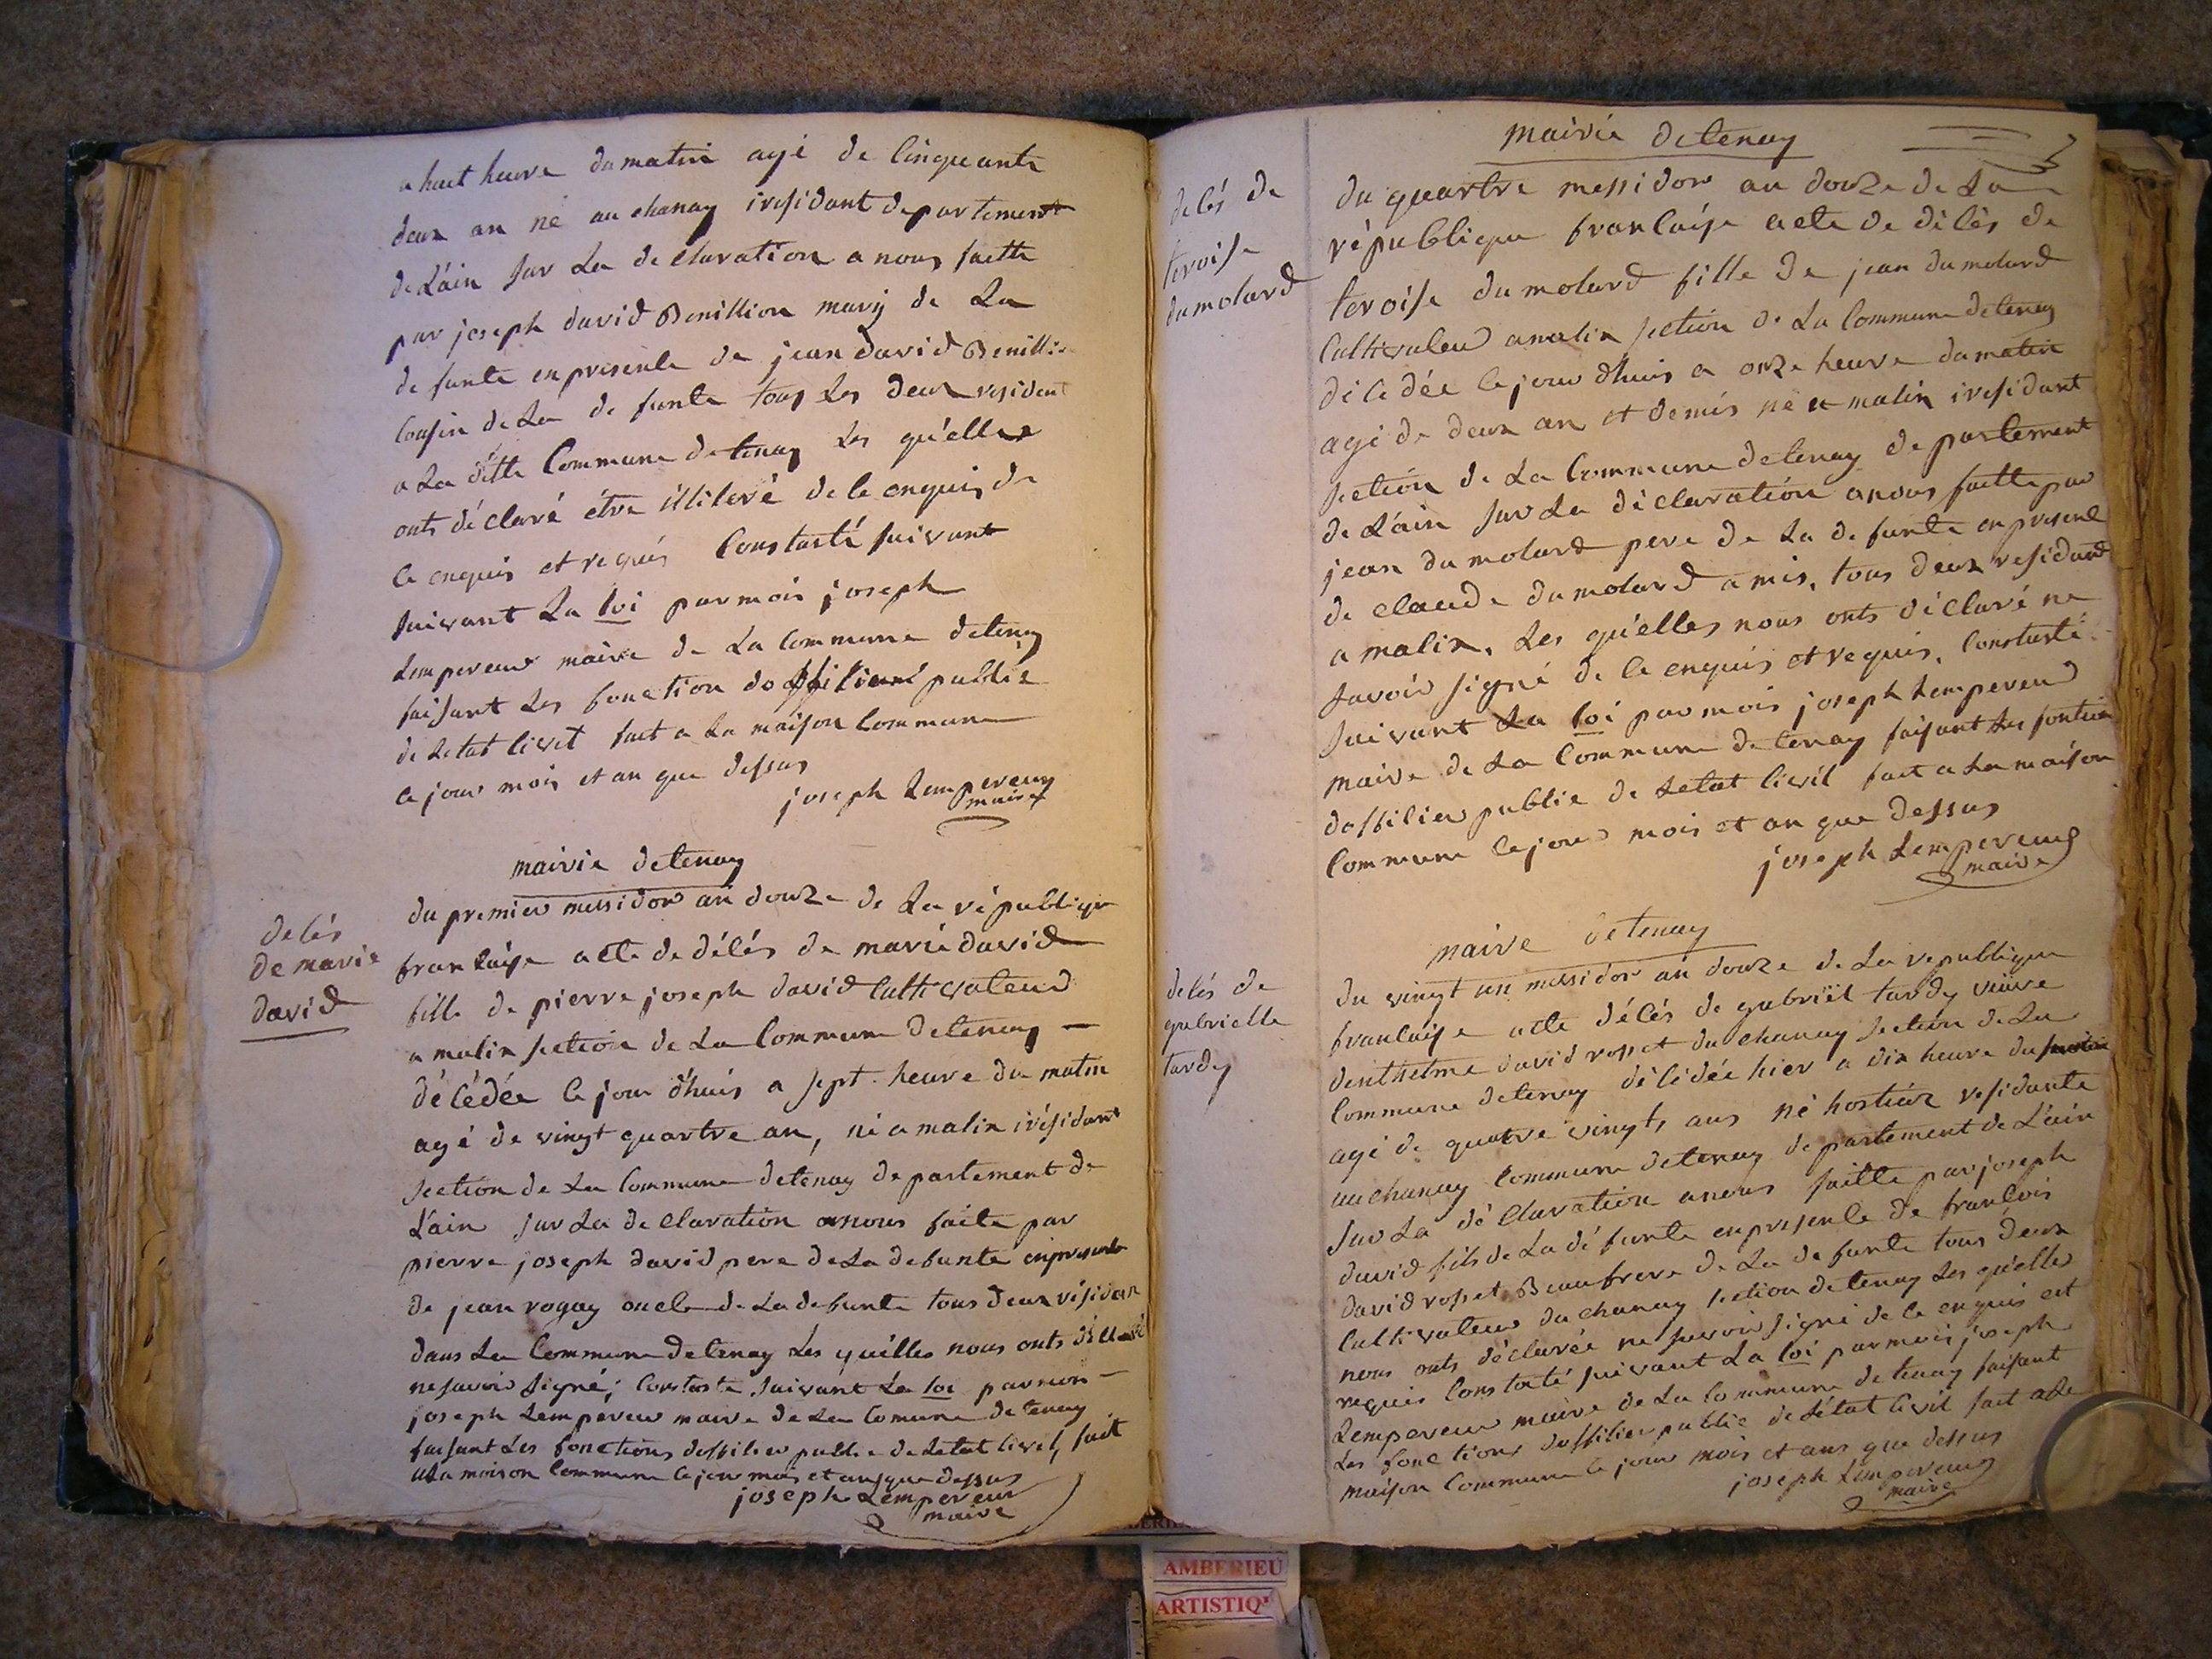 a huit heure du matin agé de cinquante
deux an né au chanay irésidant département
de Lain sur La déclaration a nous faitte
par joseph david Benillion mary de La
defunte en presence de jean david Benillio
cousin de La defunte tous Les deux resident
a La ditte Commune detenay Les quélles
onts déclaré être illiteré de ce enquis de
ce enquis et requis Constasté suivant
suivant La loi par mois joseph
Lempereur maire de La commune detenay
faisant Les fonction dofficier public
de Letat civil fait a La maison Commune
ce jour mois et an que dessus
joseph Lempereur
maire
mairie detenay
decés
de marie
david
du premier messidor an douze de La république
francaise acte de décés de marie david
fille de pierre joseph david Culticvateur
a malix section de La Commune detenay
décédée ce jour dhuis a sept heure du matin
agé de vingt quartre an, né a malix irésidant
section de La Commune detenay département de
Lain sur La declaration anous faite par
pierre joseph david pere de La defunte en presente
de jean rogay oncle de La defunte tous deux résidan
dans La Commune detenay Les quélles nous onts déclaré
ne savoir signé; Constaste suivant La loi par mon
joseph Lempereur maire de La Comune de tenay
faisant Les fonctions dofficier public de Letat civil, fait
a La maison Commune ce jour mois et an que dessus
joseph Lempereur
maire
mairie detenay
decés de
teroise
dumolard
du quartre messidor an douze de La
république francaise acte de décés de
teroise dumolard fille de jean dumolard
Culticvateur a malix section de La Commune detenay
décédée ce jour dhuis a onze heure du matin
agé de deux an et demis né a malix irésidant
section de La Commune detenay departement
de Lain sur La déclaration a nous faitte par
jean dumolard pere de La defunte en presence
de claude dumolard amis, tous deux residant
a malix, Les quélles nous onts déclaré ne
savoir signé de ce enquis et requis, Constasté
suivant La loi par mois joseph Lempereur
maire de La Commune de tenay faisant Les fontion
dofficier public de Letat civil fait a La maison
Commune ce jour mois et an que dessus
joseph Lempereur
maire
maire detenay
decés de
gabrielle
tardy
du vingt un messidor an douze de La republique
francaise acte décés de gabriël tardy veuve
denthelme david rosset du chanay section de La
Commune detenay décédée hier a dix heure du matin
agé de quatre vingts ans né hostiaz residante
au chanay Commune detenay departement de Lain
sur La déclaration a nous faitte par joseph
david fils de La défunte en presence de francois
david rosset Beaufrere de La defunte tous deux
Culticvateur du chanay section detenay Les quélles
nous onts déclarée ne savoir signé de ce enquis et
requis Constaté suivant La loi par mois joseph
Lempereur maire de La Commune de tenay faisant
Les fonctions dofficier public de Létat civil fait a La
maison Commune ce jour mois et ans que dessus
joseph Lempereur
maire
AMBERIEU
ARTISTIQ'